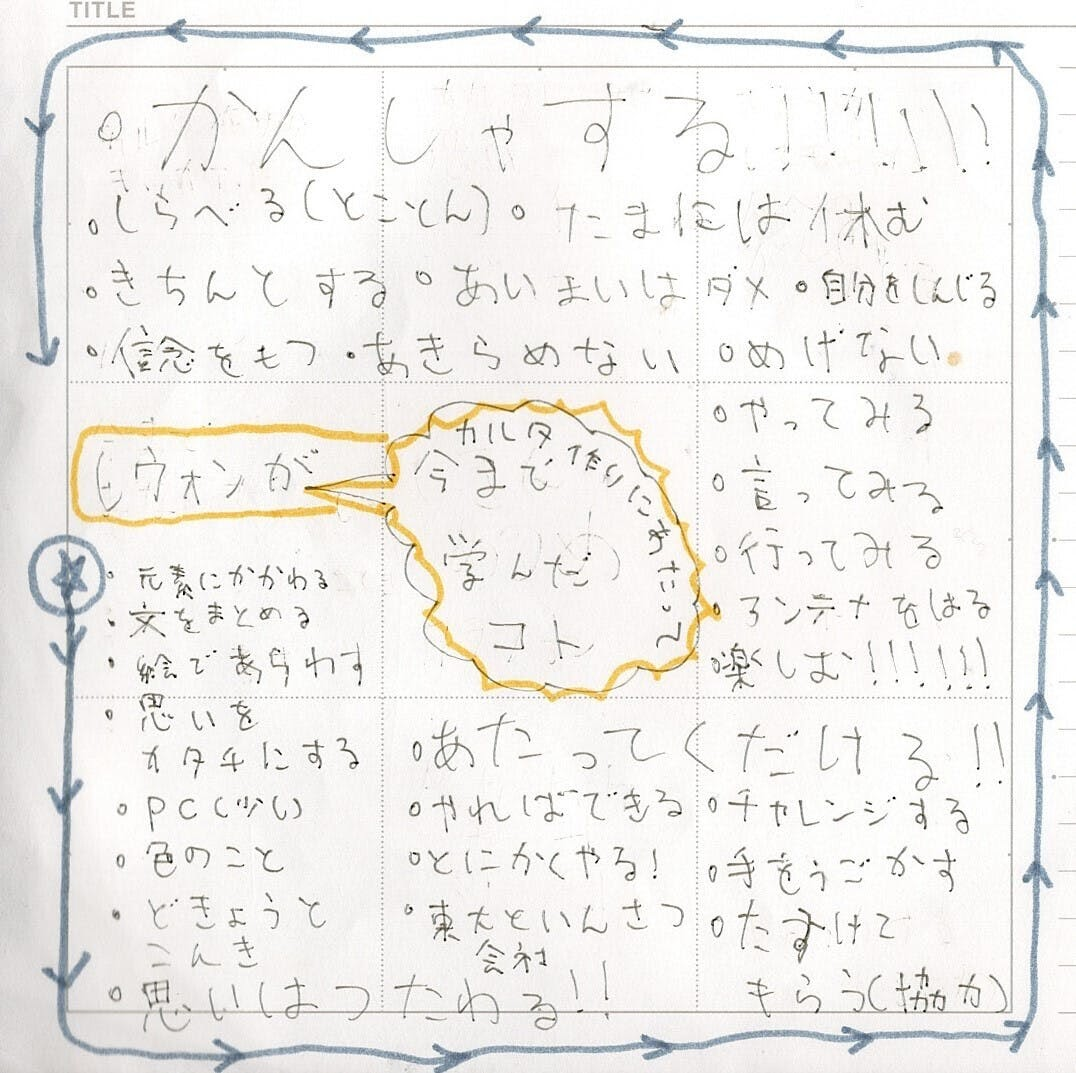 TITLE
かんしゃする!!!!!!!
しらべる(とことん)
たまには休む
きちんとする
あいまいはダメ
自分をしんじる
信念をもつ
あきらめない
めげない
ウォンが
カルタ作りにあたって
今まで
学んだ
コト
元素にかかわる
文をまとめる
絵であらわす
思いを
カタチにする
PC(少い)
色のこと
どきょうと
こんき
思いはつたわる!!
あたってくだける!!
やればできる
とにかくやる!
東大といんさつ
会社
チャレンジする
手をうごかす
たすけて
もらう(協力)
やってみる
言ってみる
行ってみる
アンテナをはる
楽しむ!!!!!!